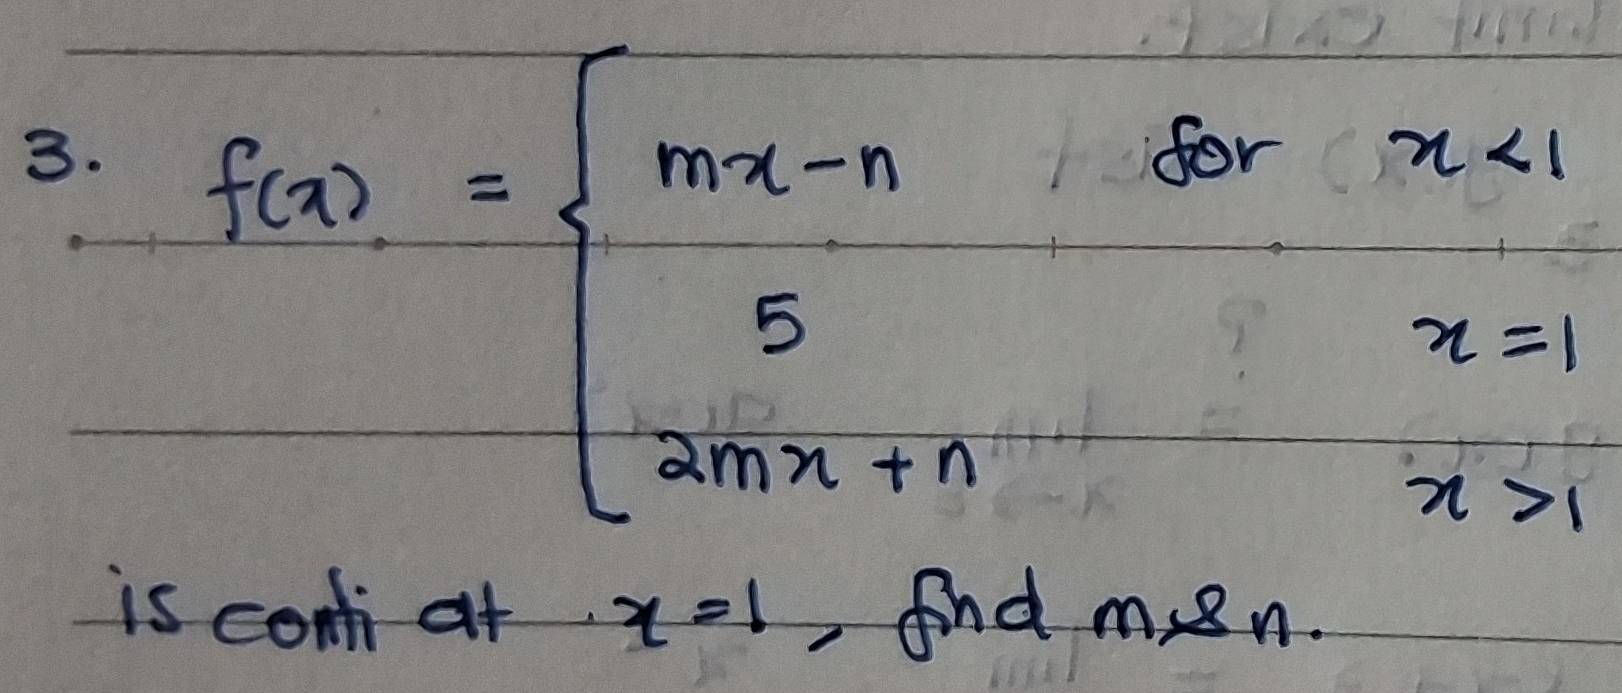 3. f(x) = { mx - n for x < 1
5 x = 1
2mx + n x > 1
is conti at x = 1, find m & n.